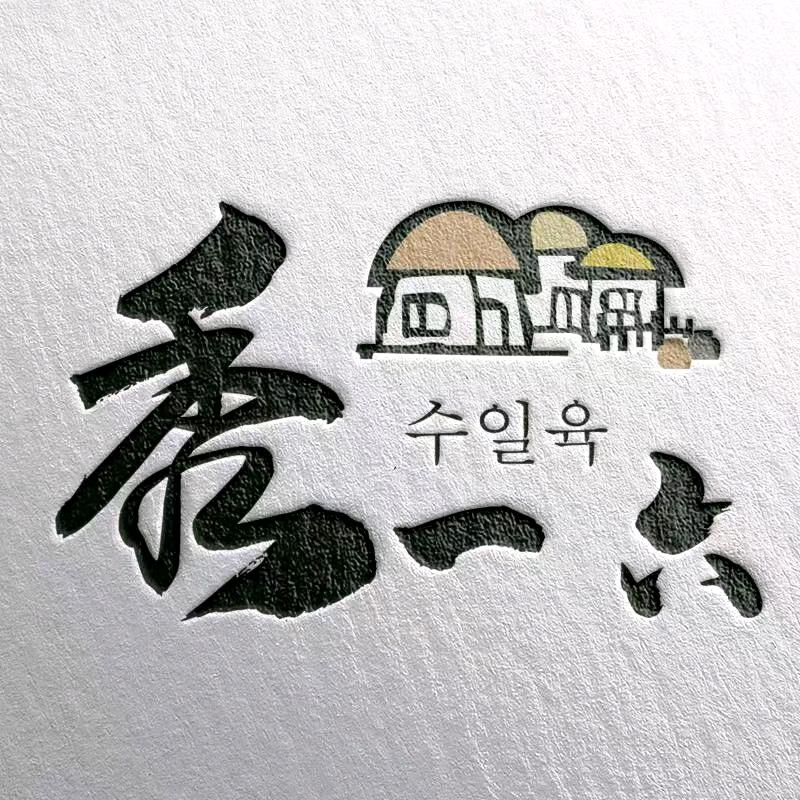 수일육
秀一六